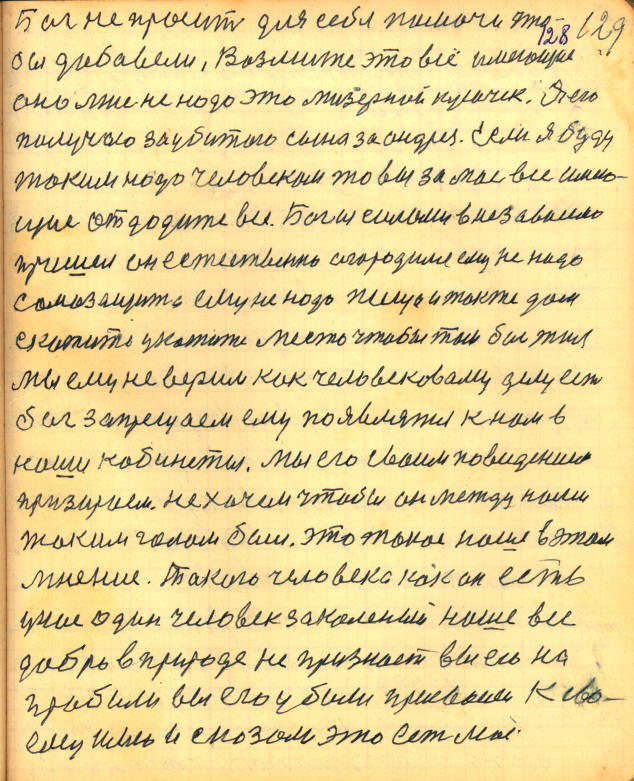 Бог не просит для себя помочи что-
128 129
бы добавели, Возмите это всё имеющие
оно мне не надо это мизерной кусочек. Я его
получаю за убитого сына за андрея. Если я буду
таким надо человеком то вы за мое все имею-
щие отдодите все. Богом силами внезавысемо
пришел он естественно огородился ему не надо
самозащита ему не надо пища и также дом
скажите укажите место чтобы там бог жил
мы ему не верим как человековому делу есть
бог запрещаем ему появлятся к нам в
наши кабинеты, мы его своим поведением
призираем. не хочем чтобы он между нами
таким голом был. это такое наше в этом
мнение. Такого человека как он есть
уное один человек закаленый наше все
добро в природе не признает вы его на
гробили вы его убили присвоили к сво-
ему имю и сказали это есть мое.